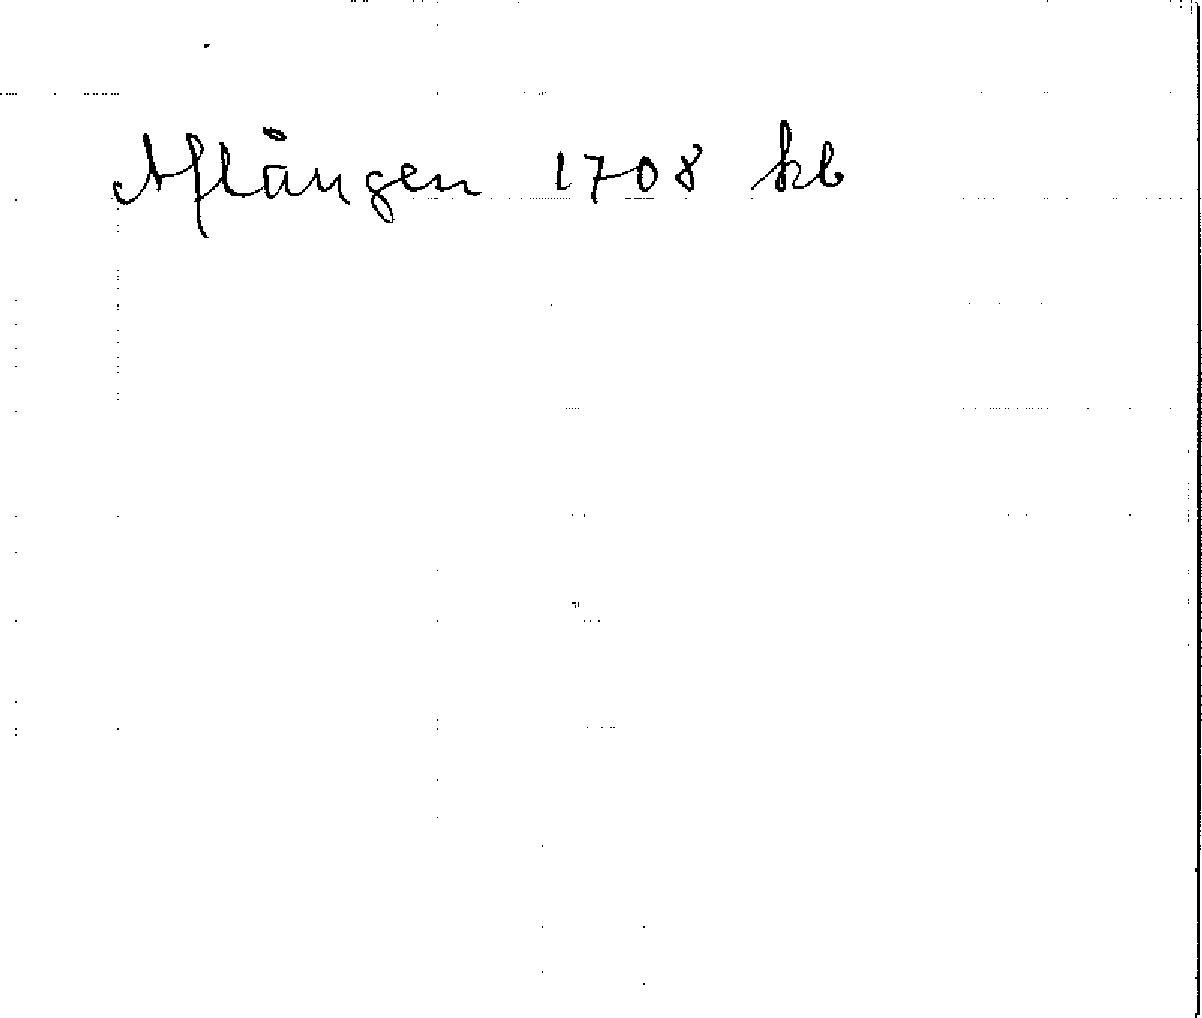 Aflängen 1708 kb